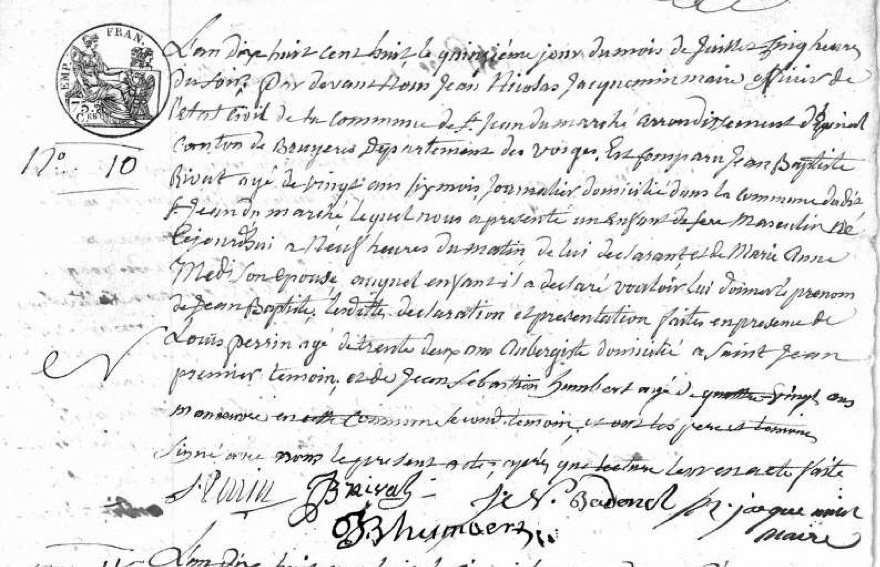 EMP. FRAN.
75. C.
N.o 10
L'an dix huit cent huit le quinzième jour du mois de Juillet cinq heures
du soir, Par devant Nous Jean Nicolas Jacquemin maire officier de
l'état Civil de la Commune de St. Jean du marché arrondissement d'Epinal
Canton de Bruyeres Département des vosges, Est Comparu Jean Baptiste
Rivat agé de vingt ans six mois, Journalier domicilié dans la commune dudit
St. Jean du marché lequel nous a presenté un Enfant de sexe Masculin Né
Cejourd'hui a Neuf heures du matin, de lui declarant et de Marie Anne
son epouse, auquel enfant il a declaré vouloir lui donner le prenom
de Jean Baptiste, lesdittes declaration et presentation faites en presence de
Louis perrin agé de trente deux ans Aubergiste domicilié a Saint Jean
premier temoin, et de Jean Sébastien humbert agé de quatre-vingt ans
manoeuvre en cette Commune Second temoin, et ont les pere et temoins
signé avec nous le present acte, après que lecture leur en a eté faite
Perrin B Rivat J. N. J. N. jacquemin
humbert maire
L'an dix